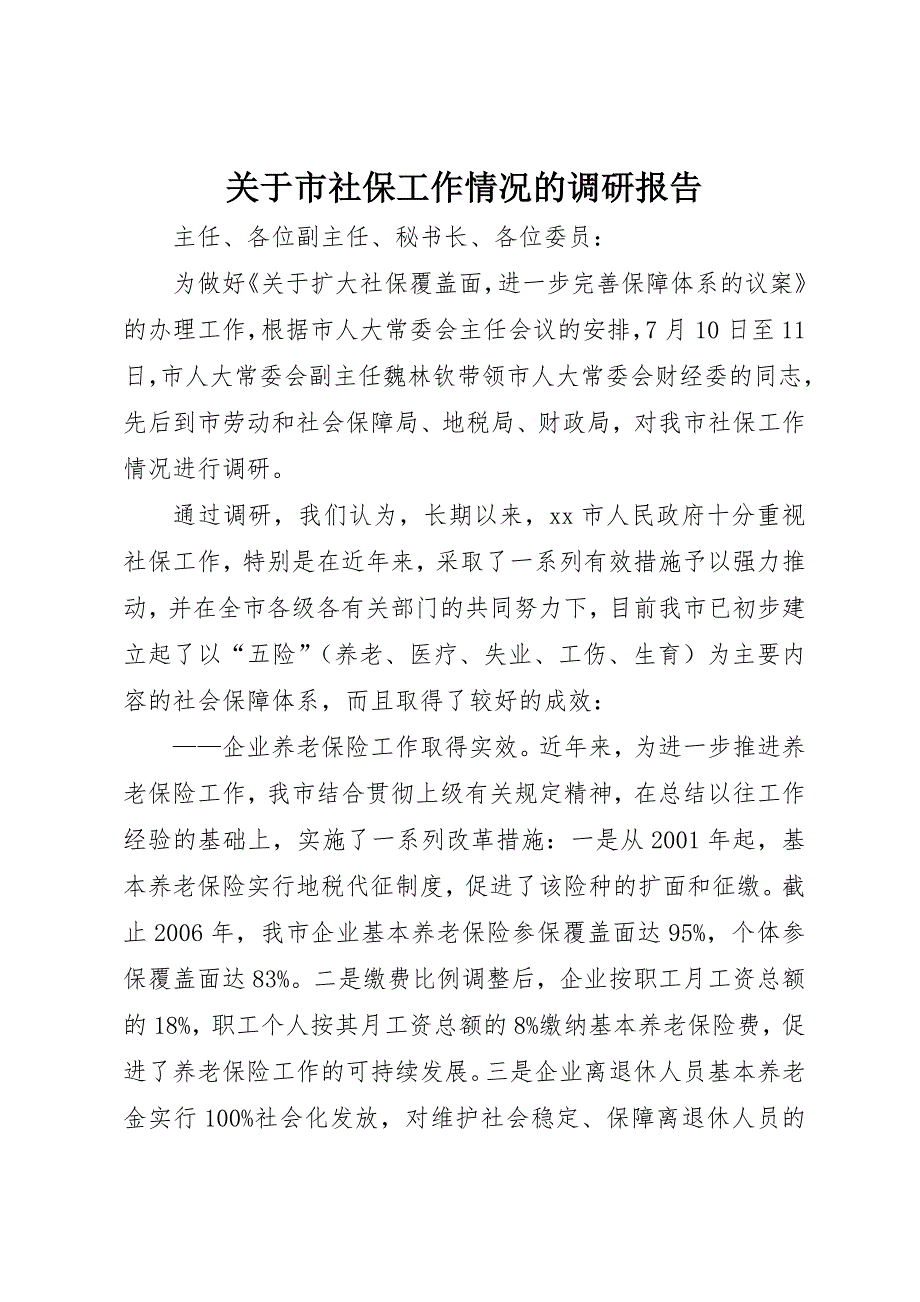 关于市社保工作情况的调研报告
主任、各位副主任、秘书长、各位委员：
为做好《关于扩大社保覆盖面，进一步完善保障体系的议案》
的办理工作，根据市人大常委会主任会议的安排，7 月 10 日至 11
日，市人大常委会副主任魏林钦带领市人大常委会财经委的同志，
先后到市劳动和社会保障局、地税局、财政局，对我市社保工作
情况进行调研。
通过调研，我们认为，长期以来，xx 市人民政府十分重视
社保工作，特别是在近年来，采取了一系列有效措施予以强力推
动，并在全市各级各有关部门的共同努力下，目前我市已初步建
立起了以“五险”（养老、医疗、失业、工伤、生育）为主要内
容的社会保障体系，而且取得了较好的成效：
——企业养老保险工作取得实效。近年来，为进一步推进养
老保险工作，我市结合贯彻上级有关规定精神，在总结以往工作
经验的基础上，实施了一系列改革措施：一是从 2001 年起，基
本养老保险实行地税代征制度，促进了该险种的扩面和征缴。截
止 2006 年，我市企业基本养老保险参保覆盖面达 95%，个体参
保覆盖面达 83%。二是缴费比例调整后，企业按职工月工资总额
的 18%，职工个人按其月工资总额的 8%缴纳基本养老保险费，促
进了养老保险工作的可持续发展。三是企业离退休人员基本养老
金实行 100%社会化发放，对维护社会稳定、保障离退休人员的